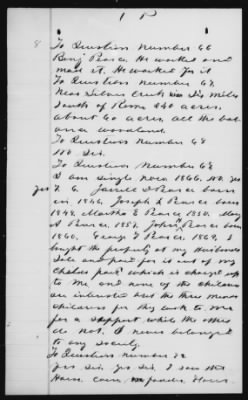 8 To Question Number 66
Benj Pearce. He worked and
made it. He worked for it
To Question Number 67
Near Silver Creek Six Miles
South of Rome 240 acres.
about 60 acres, all the bal
ance woodland.
To Question Number 68
No Sir.
To Question Number 69
I am single now 1866. No. yes
yes F. C. Jarrell D Pearce born
in 1846, Joseph L Pearce born
1848, Martha E Pearce 1850. May
A Pearce, 1857, John Pearce born
1860, George T Pearce, 1869, I
bought the property at my husbands
Sale and paid for it out of my
which is charged up
to me, and none of the children
are interested but the three
children for they work to me
for a support while the others
do not. I never belonged
to any society.
To Question Number 72
yes Sir, yes Sir, I saw the
Horse, corn, fodder,